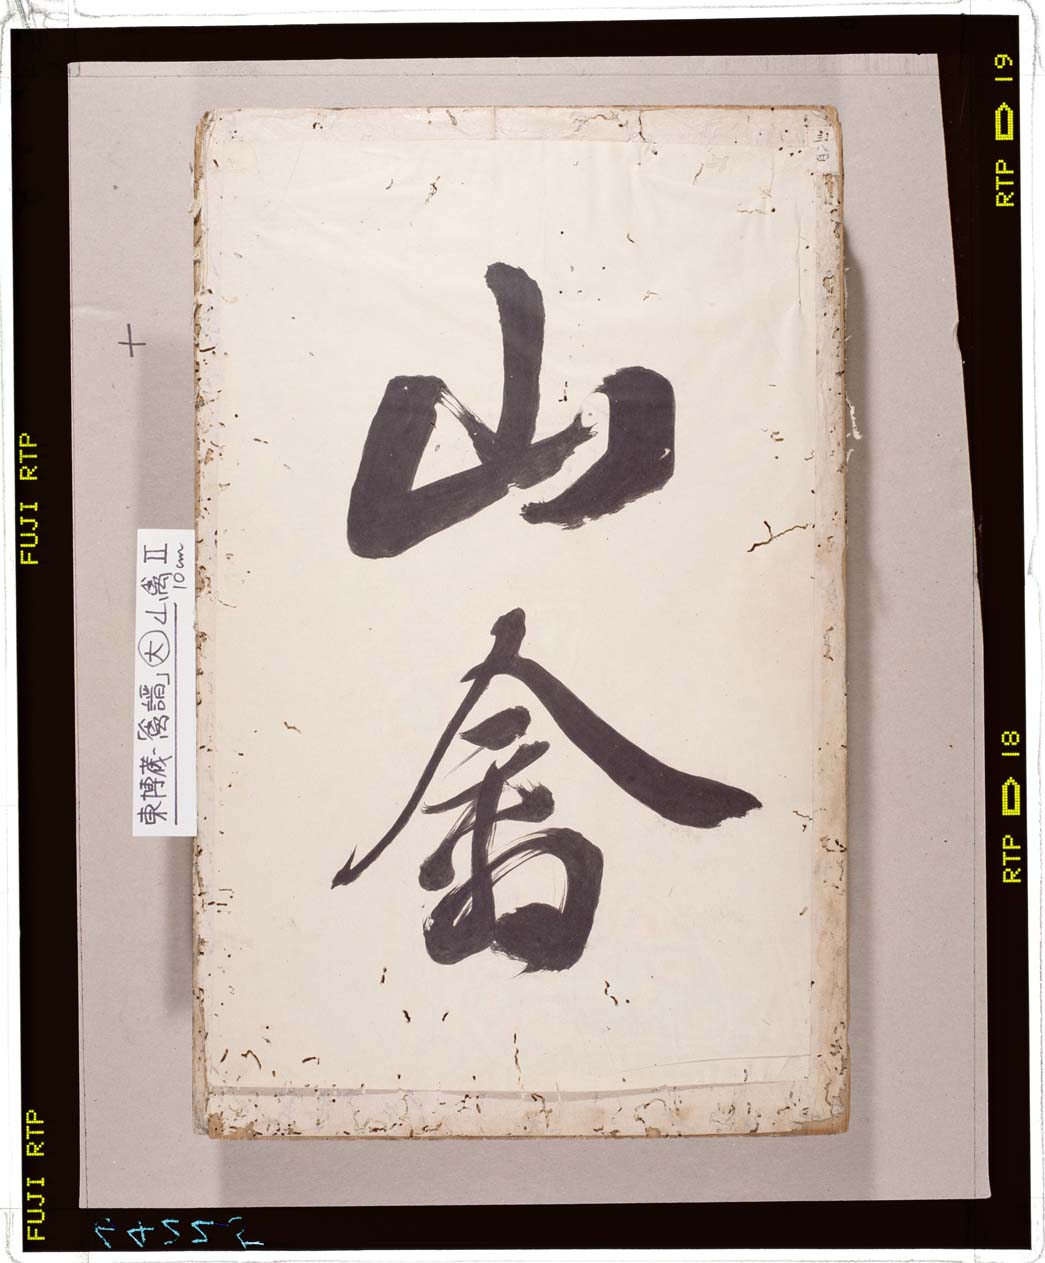 山禽
三八四
東博蔵-「禽譜」大 山禽 II
10cm
FUJI RTP
FUJI RTP
RTP 19
RTP 18